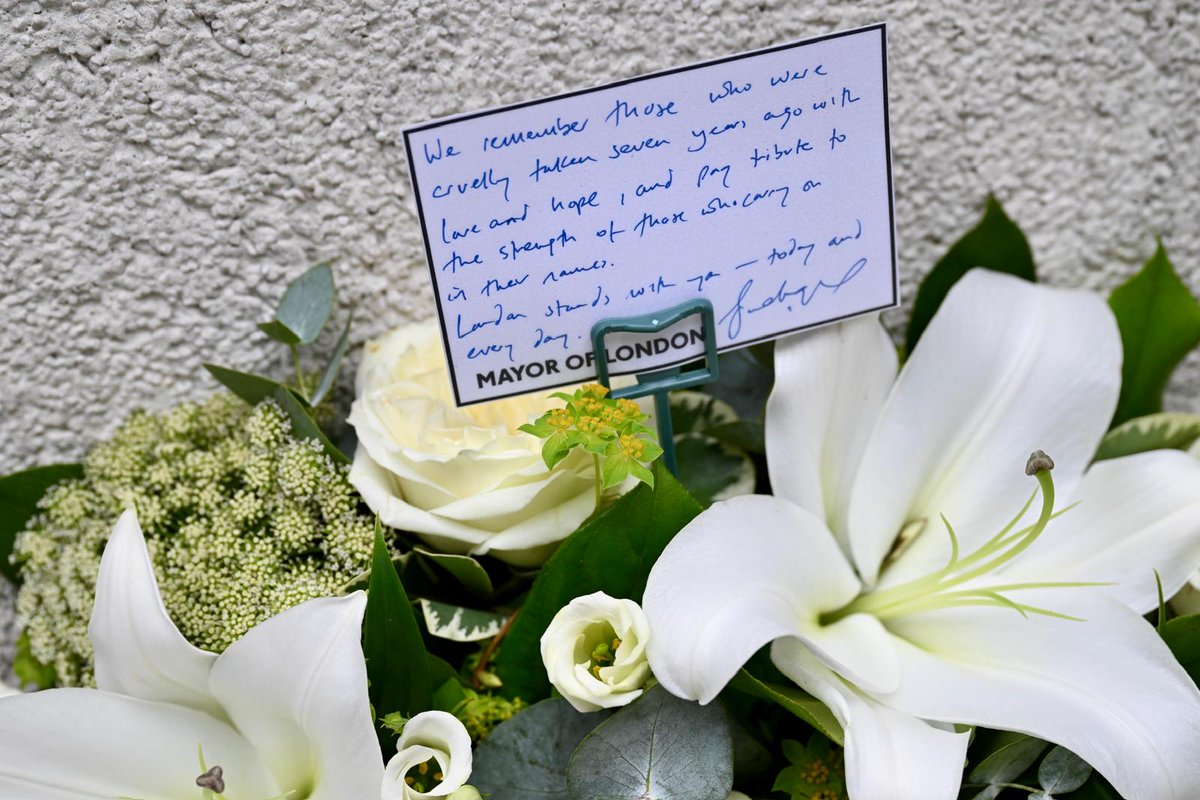 We remember those who were
cruelly taken seven years ago with
love and hope, and pay tribute to
the strength of those who carry on
in their names.
London stands with you – today and
every day.
MAYOR OF LONDON